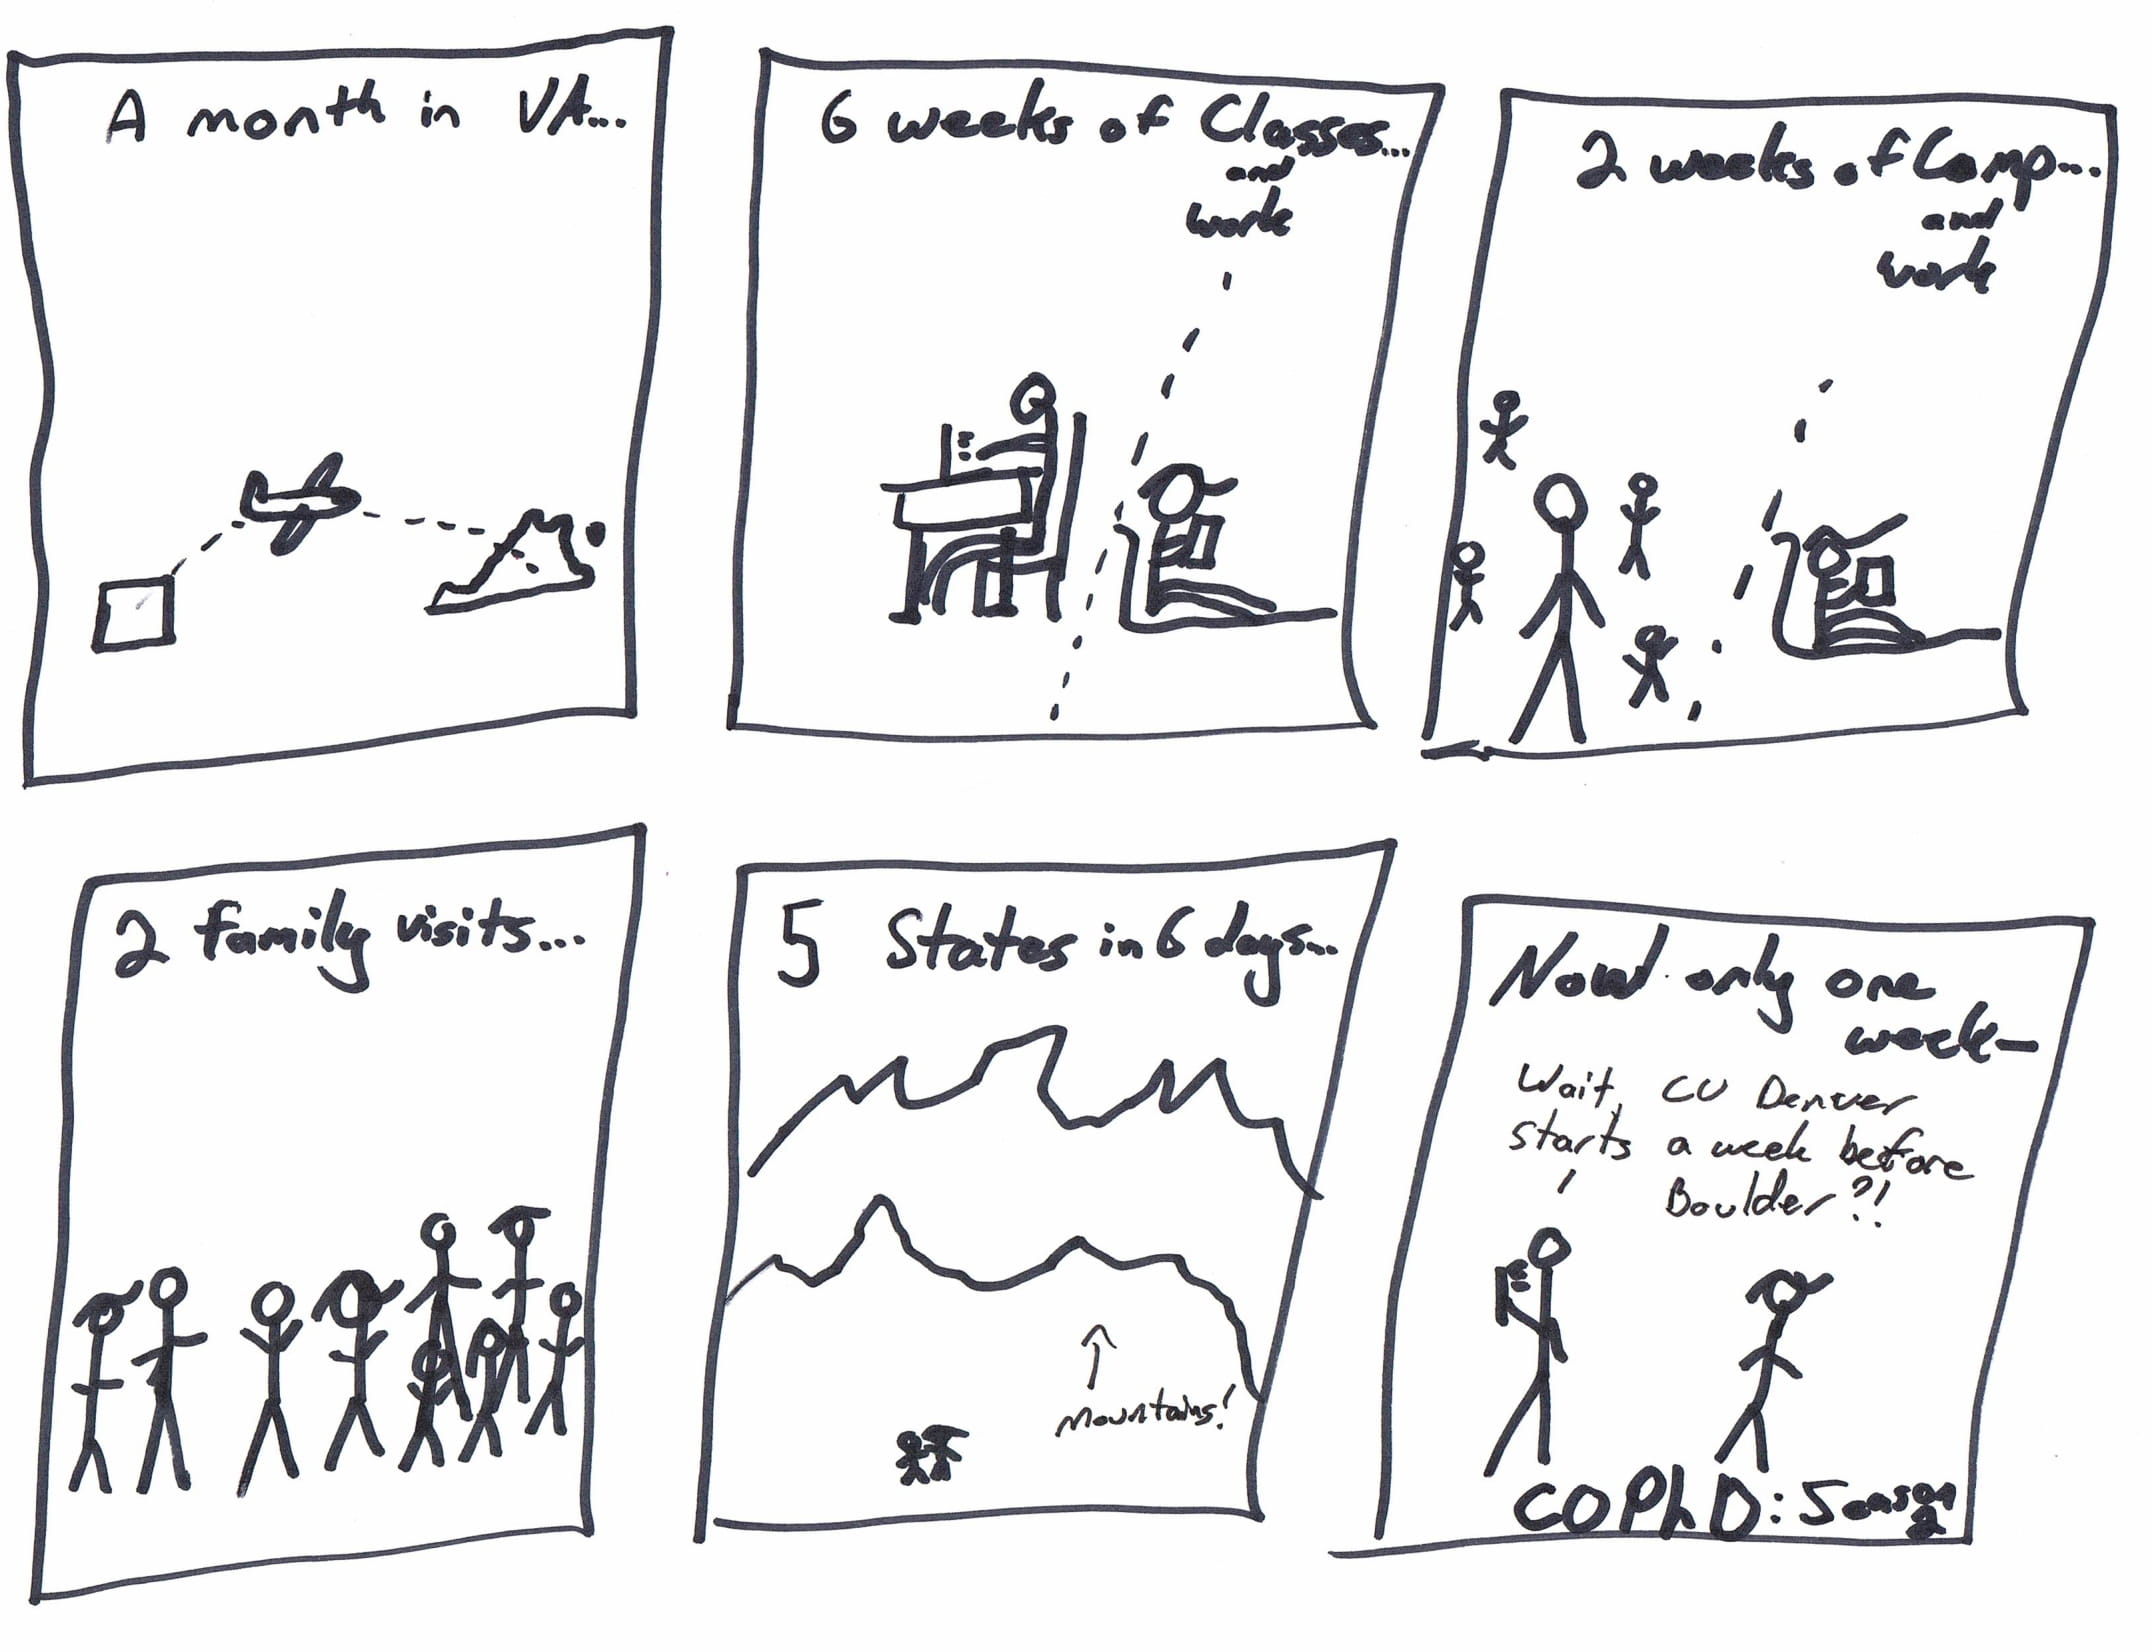 A month in VA...
6 weeks of Classes...
and
work
2 weeks of Camp...
and
work
2 family visits...
5 States in 6 days...
Mountains!
Now only one
week-
Wait, CU Denver
starts a week before
Boulder?!
COPhD: Season
2